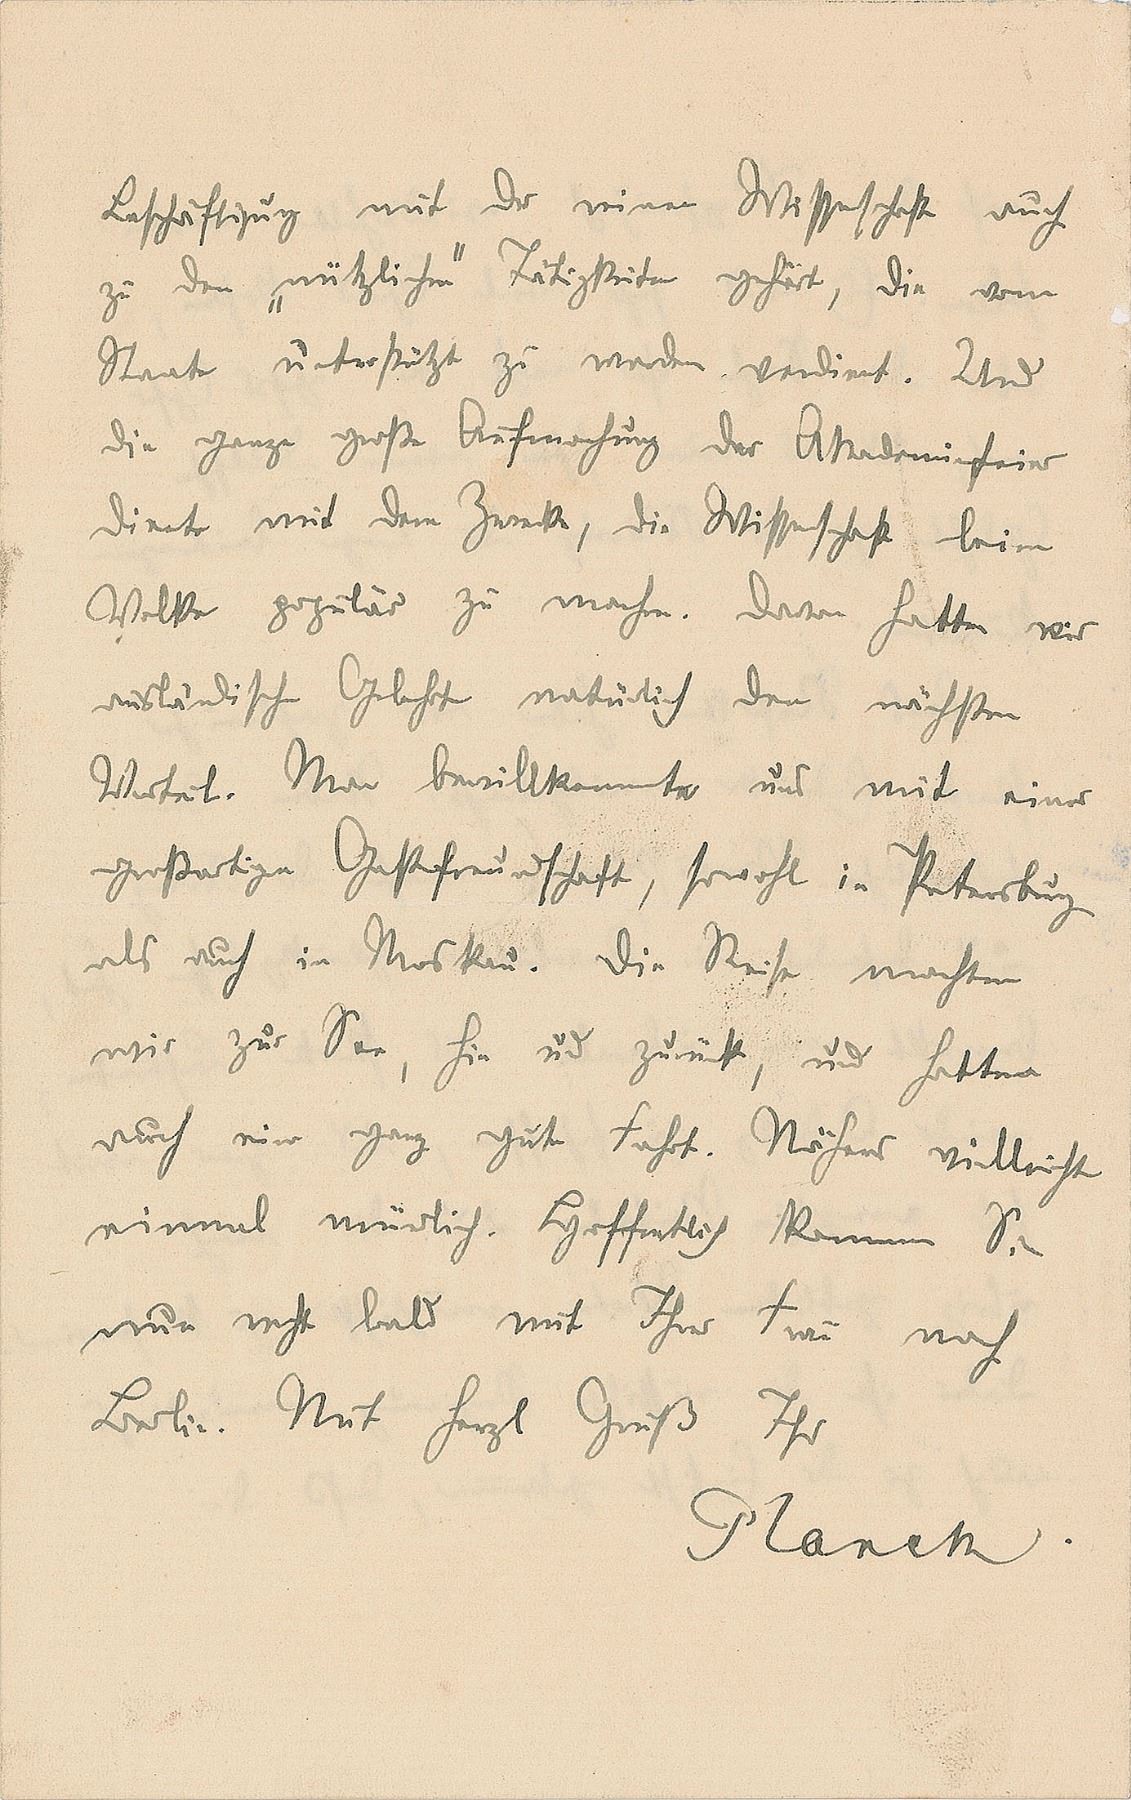 Beschäftigung mit der reinen Wissenschaft auch
zu den „nützlichen" Tätigkeiten gehört, die vom
Staate unterstützt zu werden verdient. Und
die ganze große Aufmachung der Akademiefeier
diente mit dem Zwecke, die Wissenschaft beim
Volke populär zu machen. Davon hatten wir
ausländische Gelehrte natürlich den nächsten
Vorteil. Man bewillkommnete uns mit einer
großartigen Gastfreundschaft, sowohl in Petersburg
als auch in Moskau. Die Reise machten
wir zur See, hin und zurück, und hatten
auch eine ganz gute Fahrt. Näheres vielleicht
einmal mündlich. Hoffentlich kommen Sie
nun recht bald mit Ihrer Frau nach
Berlin. Mit herzl Gruß Ihr
Planck.